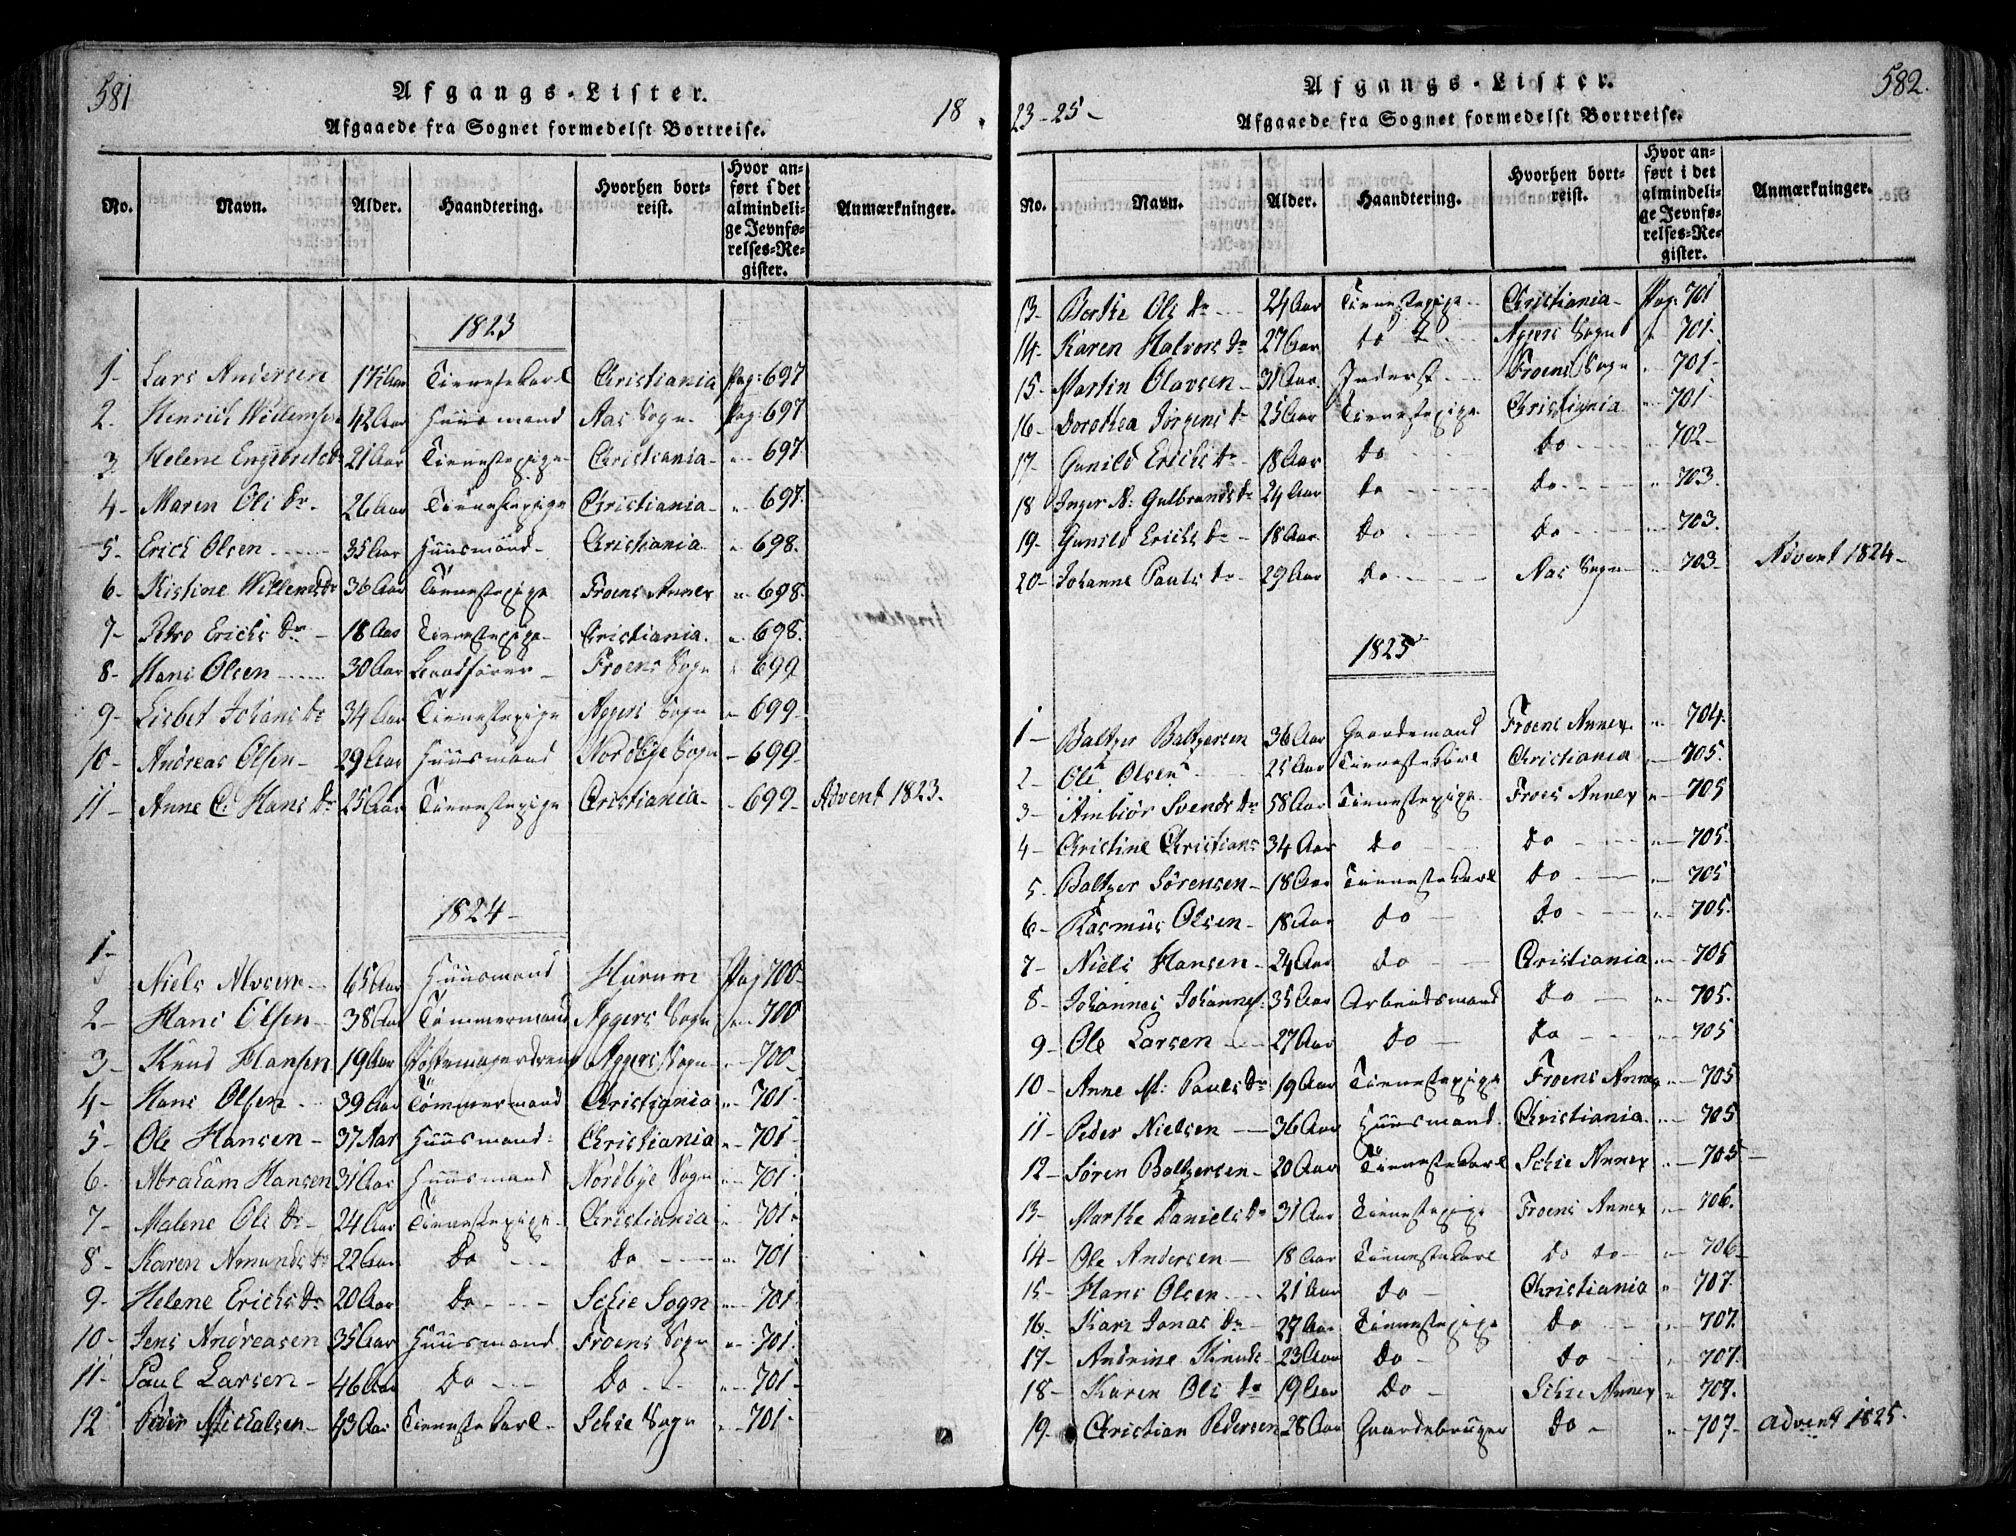 581
Afgangs-Lister.
Afgaaede fra Sognet formedelst Bortreise.
18
No. Navn. Alder. Haandtering. Hvorhen bortreist. Hvor anført i det almindelige Jevnførelses-Register. Anmærkninger.
1823
1- Lars Andersen 17½ Aar Tienestekarl Christiania Pag: 697
2. Henrich Willemsen 42 Aar Huusmand Aas Sogn Pag: 697
3. Helene Engebretsdr 21 Aar Tienestepige Christiania- " 697
4- Maren Ols dr. 26 Aar Tienestepige Christiania- " 697.
5- Erich Olsen 35 Aar Huusmand- Christiania " 698.
6- Kistine Willemsdr 36 Aar Tienestepige Froens Annex " 698.
7- Erichs dr 18 Aar Tienestepige- Christiania. " 698.
8- Hans Olsen 30 Aar Froens Sogn 699
9- Lisbet Johans dr 34 Aar Tienestepige Aggers Sogn 699-
10- Andreas Olsen- 29 Aar Huusmand Nordbye Sogn 699-
11- Anne C Hans dr 25 Aar Tienestepige Christiania- 699- Advent 1823.
1824-
1- Niels 65 Aar Huusmand Hurum Pag 700-
2- Hans Olsen- 38 Aar Tömmermand Aggers Sogn 700
3- Knud Hansen 19 Aar Aggers Sogn 700-
4- Hans Olsen 39 Aar Tömmermand Christiania " 701-
5- Ole Hansen- 37 Aar Huusmand: Christiania " 701-
6- Abraham Hansen 31 Aar Huusmand Nordbye Sogn 701
7- Malene Ols dr- 24 Aar Tienestepige- Christiania 701-
8- Karen Amunds dr 22 Aar do do " 701
9- Helene Erichs dr 20 Aar do Schie Sogn 701
10- Jens Andreasen 35 Aar Huusmand Froens Sogn 701.
11- Paul Larsen- 46 Aar do do 701-
12 Peder Michalsen- 43 Aar Tienestekarl- Schie Sogn 701-
23-25-
Afgangs-Lister.
582.
Afgaaede fra Sognet formedelst Bortreise.
No. Navn. Alder. Haandtering. Hvorhen bortreist. Hvor anført i det almindelige Jevnførelses-Register. Anmærkninger.
13- Berthe Ols dr 24 Aar Tienestepige Christiania- Pag: 701
14- Karen Halvors dr 27 Aar do Aggers Sogn 701-
15- Martin Olavsen- 31 Aar. Inderst Froens Sogn 701-
16- Dorothea Jörgens dr 25 Aar Tienestepige Christiania 701-
17- Gunild Erichs dr- 18 Aar do do 702-
18 Inger M: Gulbrands dr 24 Aar do do 703
19- Gunild Erichs dr- 18 Aar do do 703.
20- Johanne Pauls dr- 29 Aar do Aas Sogn 703 Advent 1824-
1825
1- Baltzer Baltzersen 36 Aar Gaardemand Froens Annex 704.
2- Ole Olsen 25 Aar Tienestekarl Christiania 705.
3- Ambiör Svends dr 58 Aar Tienestepige Froens Annex 705
4- Christine Christians 34 Aar do do 705.
5- Baltzer Sörensen- 18 Aar Tienestekarl do 705
6- Rasmus Olsen- 18 Aar do do 705.
7- Niels Hansen- 24 Aar do Christiania 705
8- Johannes Johannes: 35 Aar Arbeidsmand do 705.
9- Ole Larsen 27 Aar do do 705
10- Anne M: Pauls dr 19 Aar Tienestepige Froens Annex 705
11- Peder Nielsen 36 Aar Huusmand. Christiania 705
12- Sören Baltzersen- 20 Aar Tienestekarl Schie Annex 705-
13- Marthe Daniels dr 31 Aar Tienestepige Froens Annex 706.
14- Ole Andersen- 18 Aar Tienestekarl do do 706-
15- Hans Olsen 21 Aar do Christiania 707
16- Kari Jonas dr 27 Aar Tienestepige do 707.
17- Andrine Knuds- 23 Aar do do 707.
18- Karen Ols dr 19 Aar do Schie Annex 707.
19- Christian Pedersen 28 Aar Gaardebruger do 707- Advent 1825.